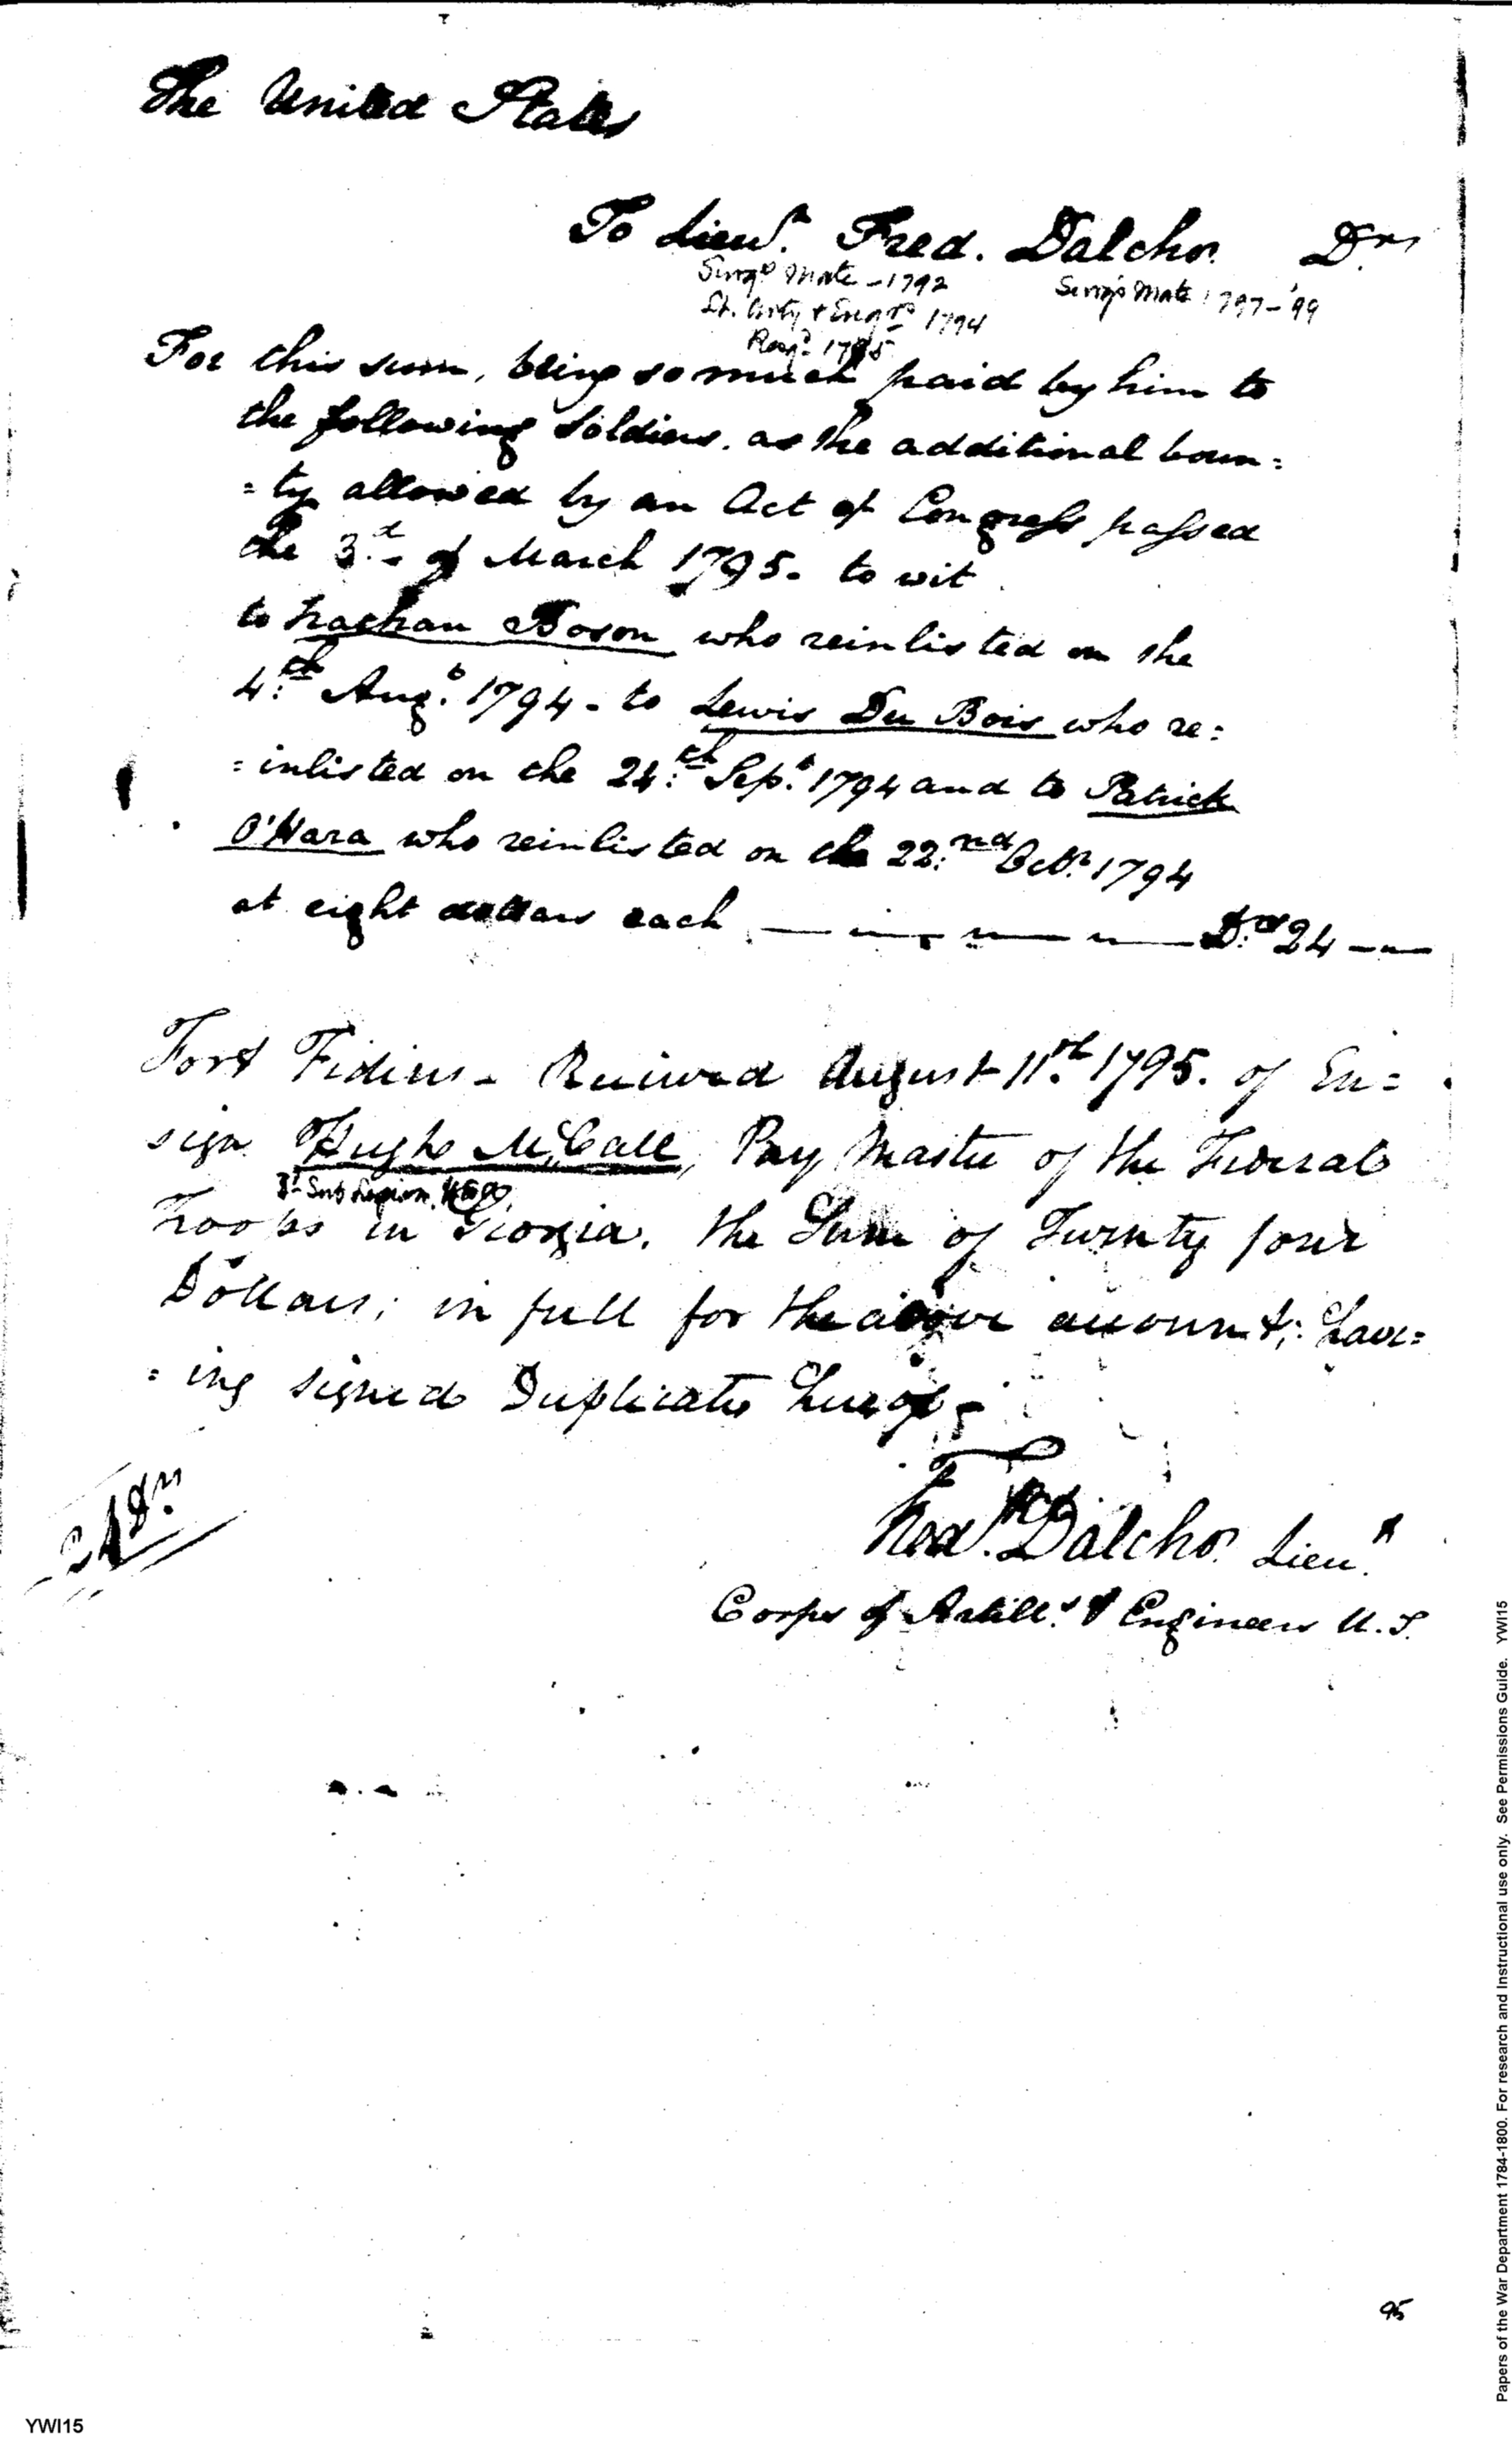 The United States
To Lieut. Fred. Dalcho. Drs
Surgs Mate - 1792
Surgs Mate 1797-'99
Lt. Arty & Engrs 1794
Resgd. 1795
For this sum, being so much paid by him to
the following Soldiers. as the additional boun=
=ty allowed by an Act of Congress passed
the 3.d of March 1795. to wit
to Boson who reinlisted on the
4.th Aug.t 1794 - to Lewis Du Bois who re=
=inlisted on the 24.th Sep.t 1794 and to Patrick
O'Hara who reinlisted on the 22.nd Octr. 1794
at eight dollars each — D.rs 24 —
Fort Fidius - Received August 11.th 1795. of En=
sign Hugh McCall, Pay Master of the Federal
3d Sub Legion,
Troops in Georgia. the Sum of Twenty four
Dollars; in full for the above account; hav=
=ing signed Duplicates hereof -
Fred. Dalcho. Lieut.
24 Drs
Corps of Artill.y & Engineers U.S.
95
YWI15
Papers of the War Department 1784-1800. For research and Instructional use only. See Permissions Guide. YWI15